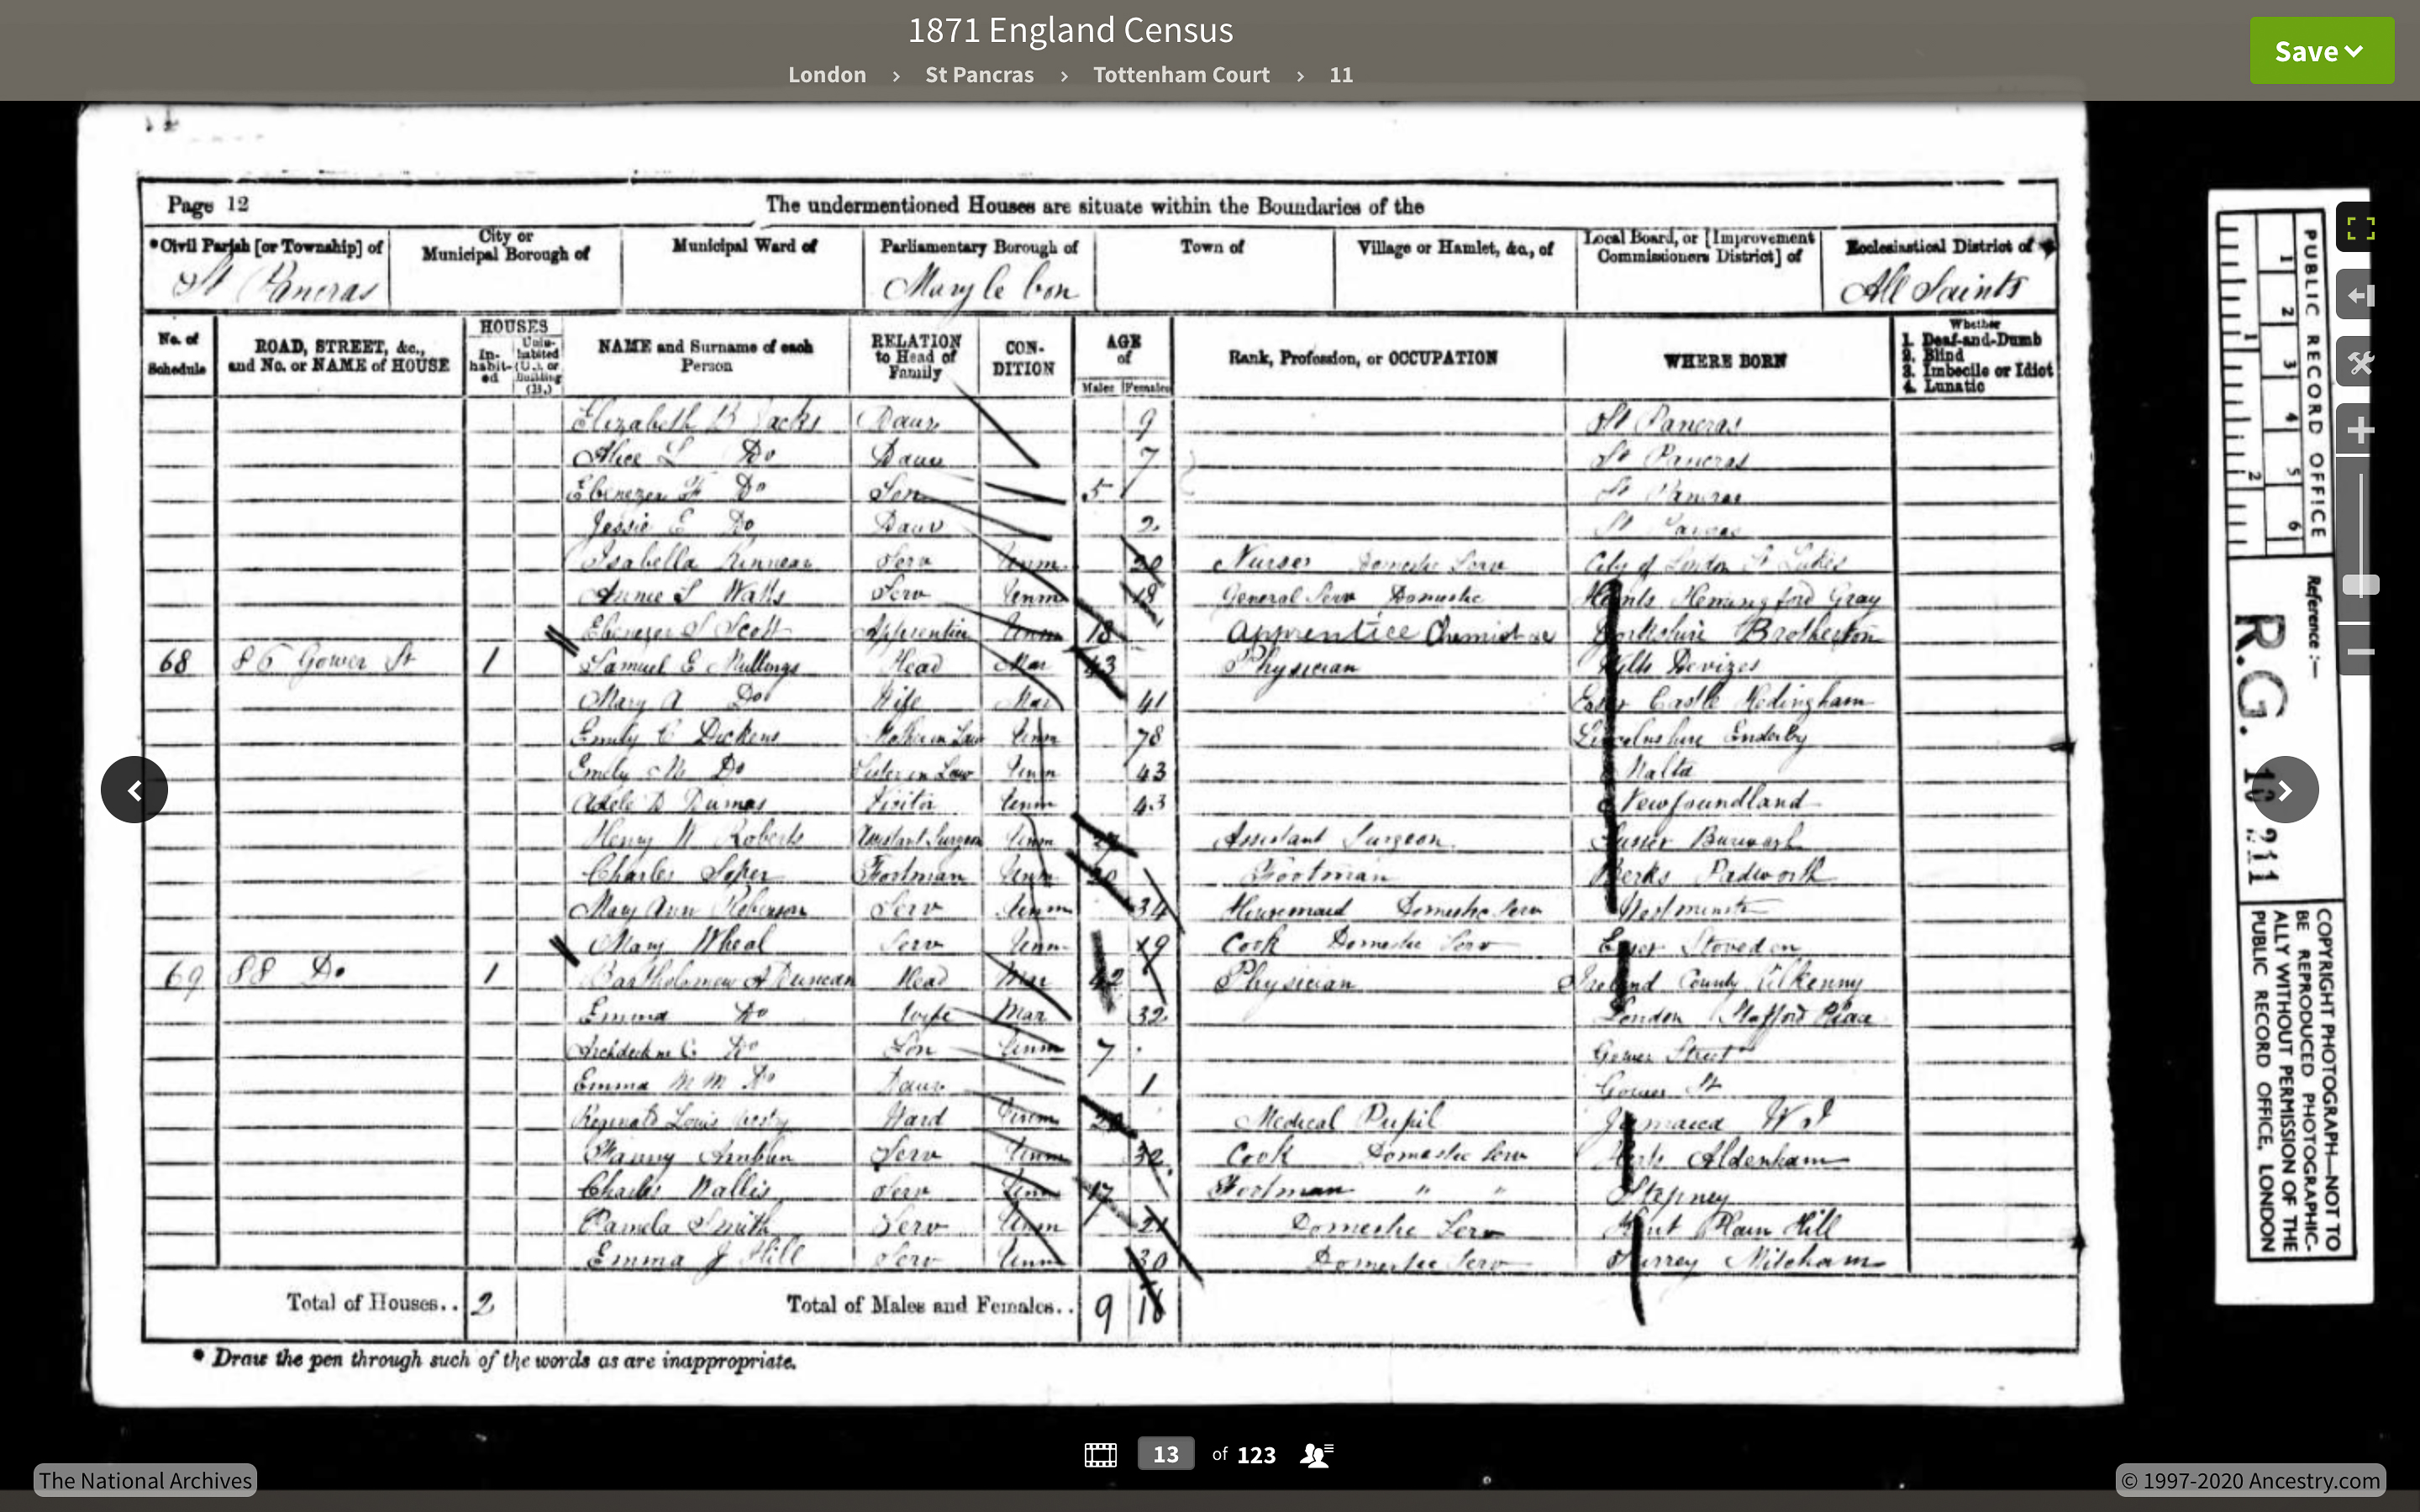 1871 England Census
London › St Pancras › Tottenham Court › 11
Save
Page 12
The undermentioned Houses are situate within the Boundaries of the
*Civil Parish [or Township] of
City or Municipal Borough of
Municipal Ward of
Parliamentary Borough of
Town of
Village or Hamlet, &c., of
Local Board, or [Improvement Commissioners District] of
Ecclesiastical District of
St Pancras Mary le bon All Saints
No. of Schedule
ROAD, STREET, &c., and No. or NAME of HOUSE
HOUSES
In-habit-ed
Unin-habited (U.), or Building (B.)
NAME and Surname of each Person
RELATION to Head of Family
CON-DITION
AGE of
Males Females
Rank, Profession, or OCCUPATION
WHERE BORN
Whether
1. Deaf-and-Dumb
2. Blind
3. Imbecile or Idiot
4. Lunatic
Elizabeth B Jacks Daur 9 St Pancras
Alice L Do Daur 7 St Pancras
Ebenezer F Do Son 5 St Pancras
Jessie E Do Daur 2 St Pancras
Isabella Kinnear Serv Unm 20 Nurse Domestic Serv City of London St Lukes
Annie S Watts Serv Unm 18 General Serv Domestic Hunts Hemingford Gray
Ebenezer S Scott Apprentice Unm 18 Apprentice Chemist Yorkshire Brotherton
68 86 Gower St 1 Samuel E Mullings Head Mar 43 Physician Wilts Devizes
Mary A Do Wife Mar 41 Essex Castle Hedingham
Emily C Dickens Mother in Law Unm 78 Lincolnshire Enderby
Emily M Do Sister in Law Unm 43 Malta
Adele D Dumas Visitor Unm 43 Newfoundland
Henry W Roberts Assistant Surgeon Unm Assistant Surgeon Sussex Burwash
Charles Soper Footman Unm 20 Footman Berks Padworth
Mary Ann Roberson Serv Unm 34 Housemaid Domestic Serv Westminster
Mary Wheal Serv Unm 19 Cook Domestic Serv Essex
69 88 Do 1 Bartholomew A Duncan Head Mar 42 Physician Ireland County Kilkenny
Emma Do Wife Mar 32 London Stafford Place
Archdeckne C Do Son Unm 7 Gower Street
Emma M M Do Daur 1 Gower St
Reginald Louis Ward Unm 20 Medical Pupil Jamaica W I
Fanny Serv Unm 32 Cook Domestic Serv Herts Aldenham
Charles Wallis Serv Unm 17 Footman " " Stepney
Pamela Smith Serv Unm 21 Domestic Serv Kent Plain Hill
Emma J Hill Serv Unm 30 Domestic Serv Surrey Mitcham
Total of Houses.. 2
Total of Males and Females.. 9 16
* Draw the pen through such of the words as are inappropriate.
PUBLIC RECORD OFFICE
1 2 3 4 5 6
1 2
Reference :—
R.G. 10 211
COPYRIGHT PHOTOGRAPH—NOT TO
BE REPRODUCED PHOTOGRAPHIC-
ALLY WITHOUT PERMISSION OF THE
PUBLIC RECORD OFFICE, LONDON
13 of 123
The National Archives
© 1997-2020 Ancestry.com